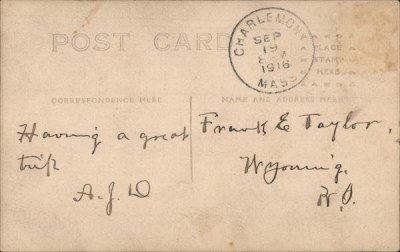 POST CARD
CHARLEMONT
SEP
19
1916
MASS.
PLACE
STAMP
HERE
CORRESPONDENCE HERE
NAME AND ADDRESS HERE
Having a great
trip
A.J.D
Frank E Taylor,
Wyoming,
N.J.